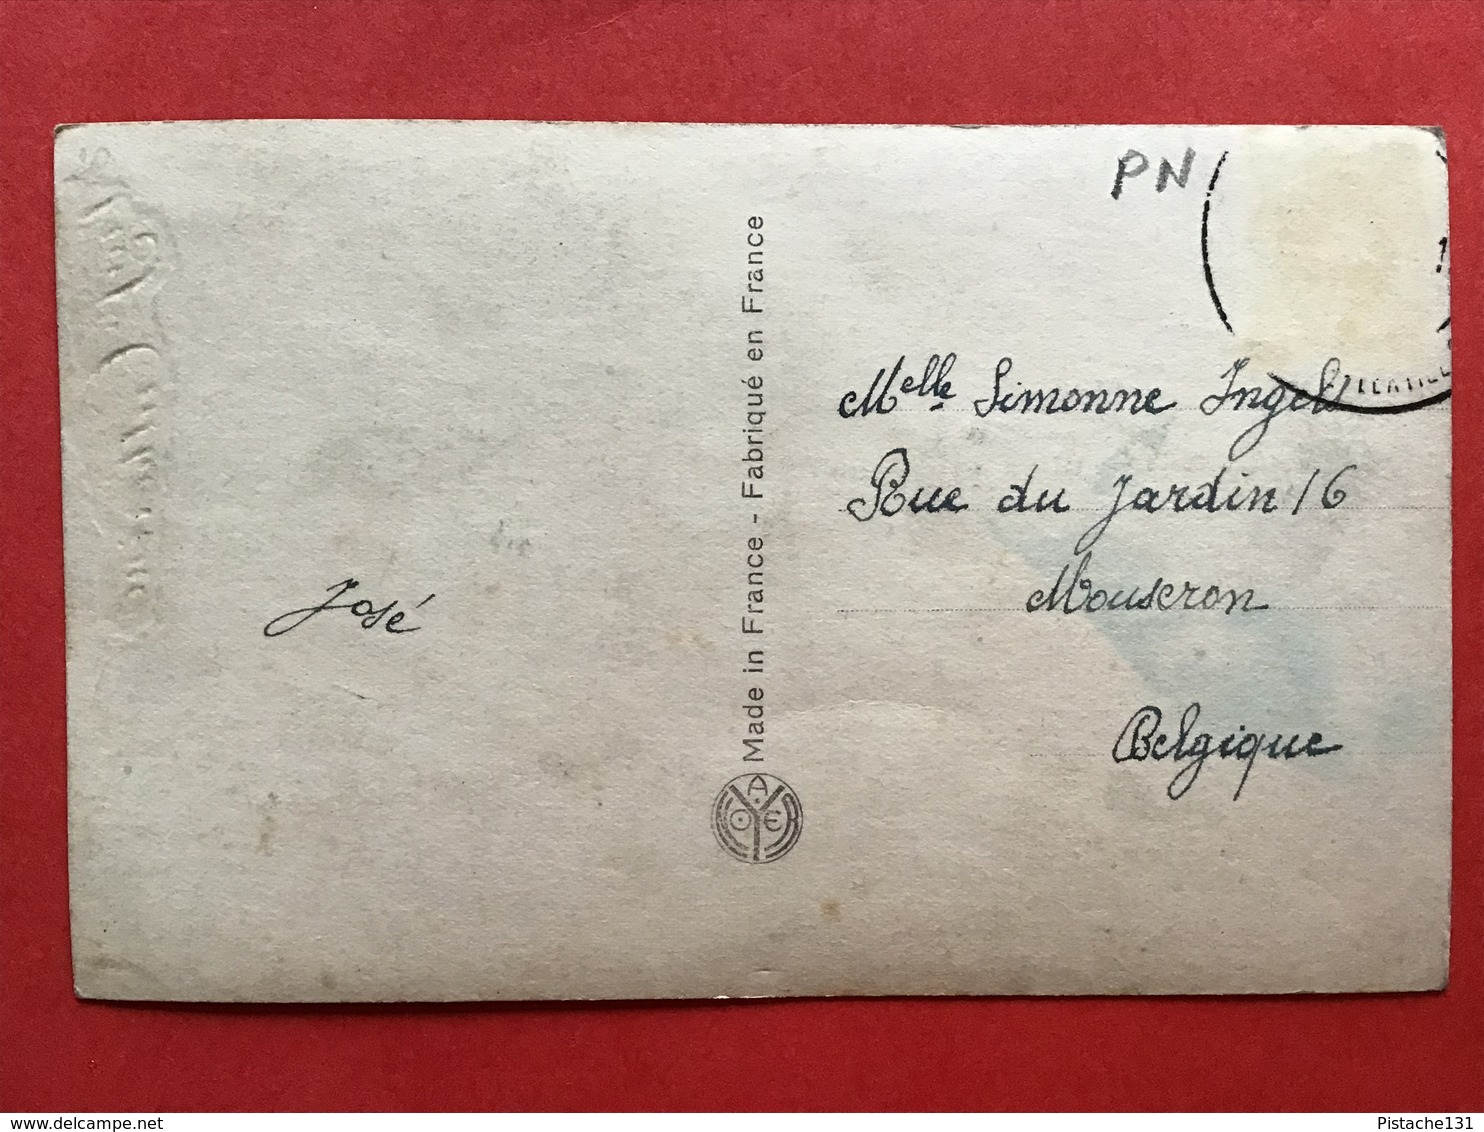 PN
Melle Simonne Ingels
Rue du Jardin 16
Mouscron
Belgique
José
Made in France - Fabriqué en France
www.delcampe.net
Pistache131